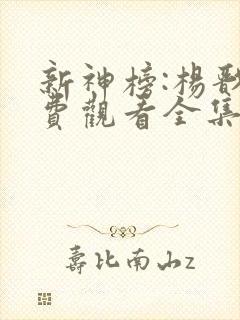 新神榜:楊
費觀看全集
壽比南山z